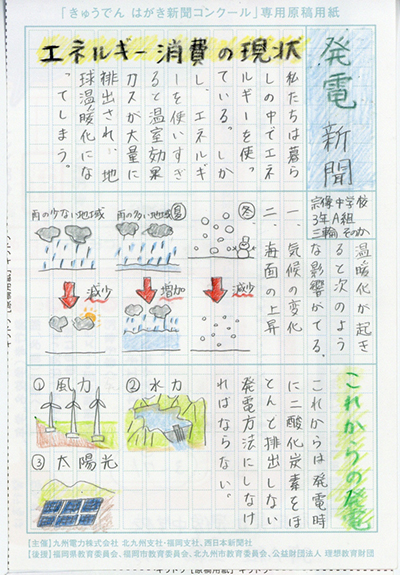 「きゅうでん はがき新聞コンクール」専用原稿用紙
発電新聞
宗像中学校
3年A組
三輪 そのか
エネルギー消費の現状
私たちは暮ら
しの中でエネ
ルギーを使っ
ている。しか
し、エネルギ
ーを使いすぎ
ると温室効果
ガスが大量に
排出され、地
球温暖化にな
ってしまう。
温暖化が起き
ると次のよう
な影響がでる。
一、気候の変化
二、海面の上昇
冬
減少
夏
雨の多い地域
増加
雨の少ない地域
減少
これからの発電
これからは発電時
に二酸化炭素をほ
とんど排出しない
発電方法にしなけ
ればならない。
①風力
②水力
③太陽光
【主催】九州電力株式会社 北九州支社・福岡支社、西日本新聞社
【後援】福岡県教育委員会、福岡市教育委員会、北九州市教育委員会、公益財団法人 理想教育財団